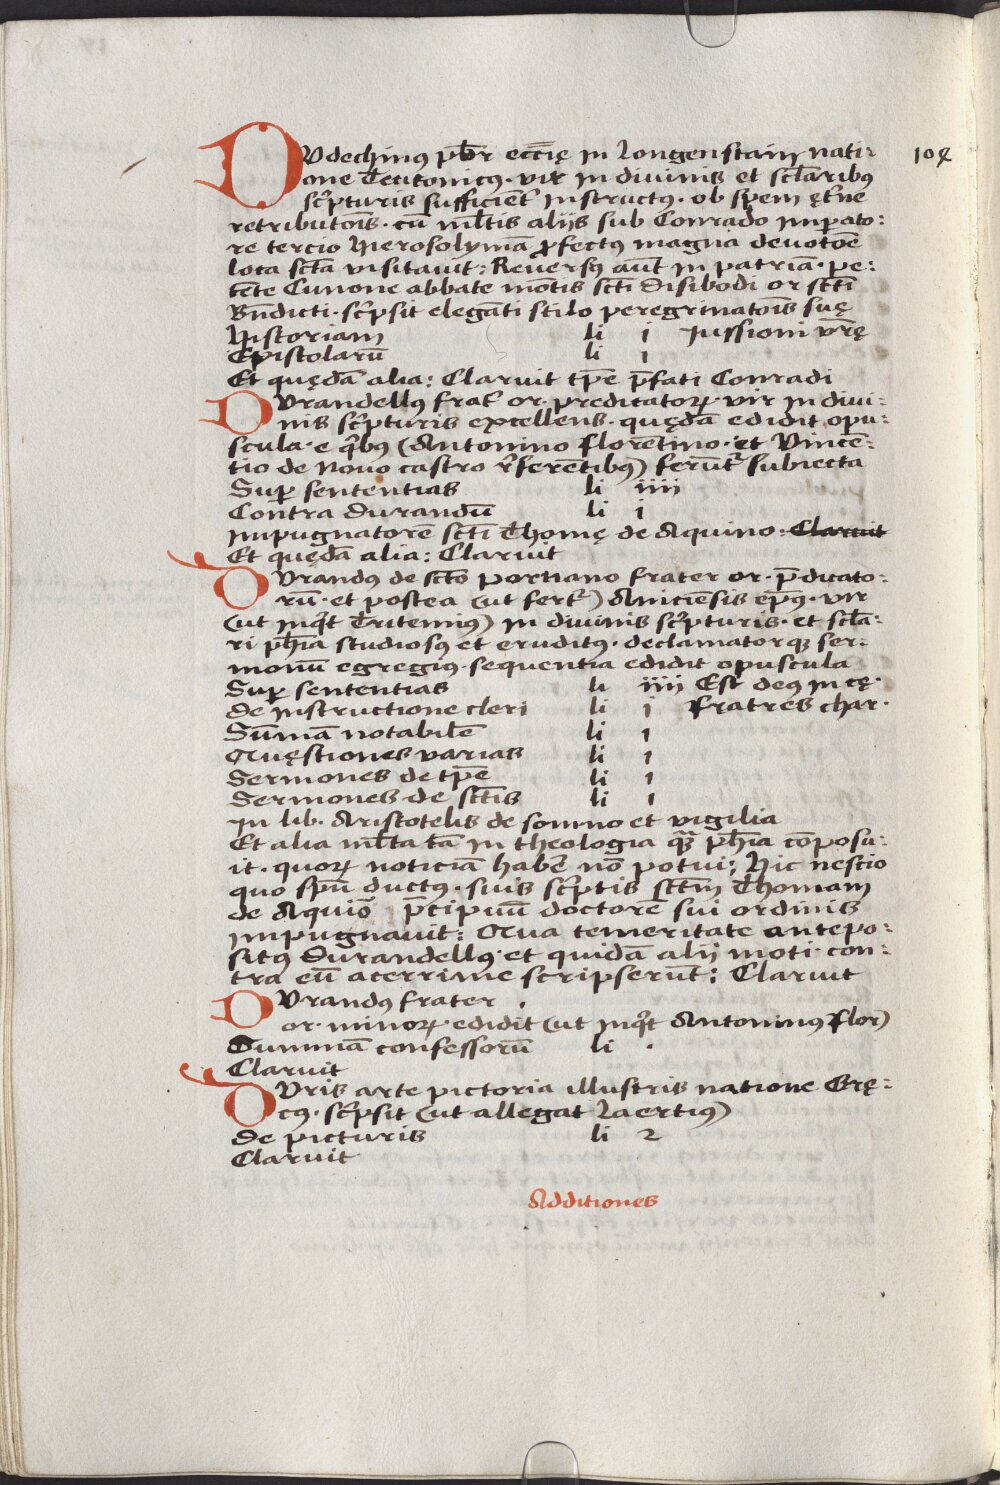 DVdechinꝰ pb̄r ecc̄ię in Longenstain nati-
one Teutonicꝰ · vir in divinis et scl̄aribꝰ
sc̄pturis sufficient̄ instructꝰ · ob spem ęt̄ne
retributōis · cū ml̄tis alijs sub Conrado impato:
re tercio Hierosolymā ꝓfectꝰ magna devotōe
loca sctā visitavit: Reversꝰ aūt in patriā · pe:
tēte Cunone abbate mōtis sctī Disibodi or sctī
Bn̄dicti · sc̄psit elegāti stilo peregrinatōis suę
Historiam li i Jussioni vr̄ę
Epistolarū li i
Et quędā alia: Claruit tp̄e p̄fati Conradi
DVrandellꝰ frat̄ or · predicatoꝝ · vir in divi:
nis sc̄pturis excellens · quędā edidit opu:
scula · e qͥbꝰ (Antonino florētino · et Vincē:
tio de Novo castro r̄ferētibꝰ) ferūt̄ subiecta
Suꝑ sententias li iiii
Contra Durandū li i
impugnatorē sctī Thomę de Aquino · Claruit
Et quędā alia: Claruit
DVrandꝰ de sctō portiano frater or · p̄dicato:
rū · et postea (ut fert̄) Aniciēsis ep̄ꝰ · vir
(ut inqͥt Tritemiꝰ) in divinis sc̄pturis · et scl̄a:
ri ph̄ia studiosꝰ et eruditꝰ · declamatorqꝫ ser:
monū egregiꝰ · sequentia edidit opuscula
Suꝑ sententias li iiii Est deꝰ in cę·
de instructione cleri li i fratres char·
Sūmā notabilē li i
Quęstiones varias li i
Sermones de tp̄e li i
Sermones de sctīs li i
in lib. Aristotelis de somno et vigilia
Et alia ml̄ta tā in theologia qͣꝫ ph̄ia cōposu:
it · quoꝝ noticiā habē nō potui; Hic nescio
quo sp̄u ductꝰ · suis sc̄ptis sctm̄ Thomam
de Aquiō p̄cipuū doctorē sui ordinis
impugnavit: Qua temeritate antepo:
sitꝰ Durandellꝰ · et quidā alij moti · con:
tra eū acerrime scripserūt: Claruit
DVrandꝰ frater
or · minoꝝ · edidit (ut inqͥt Antoninꝰ flor)
Summā confessorū li ·
Claruit
DVris arte pictoria illustris natione Grę:
cꝰ · sc̄psit (ut allegat Laertiꝰ)
De picturis li 2
Claruit
Additiones